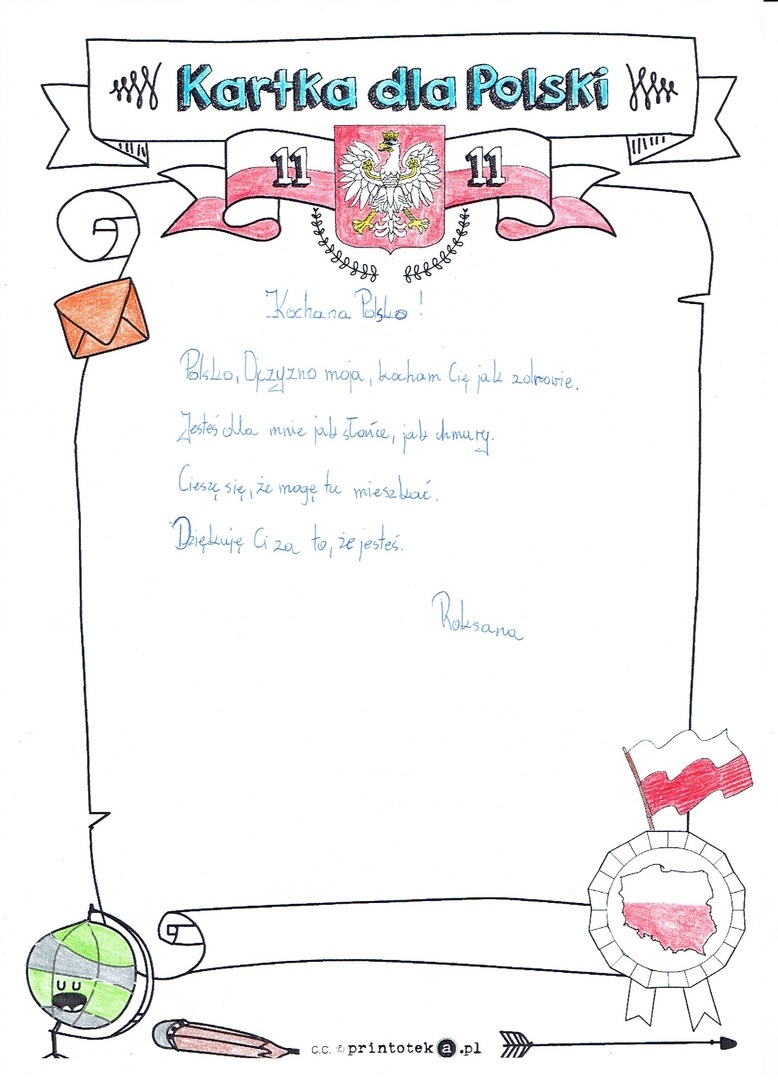 Kartka dla Polski
11 11
Kochana Polsko!
Polsko, Ojczyzno moja, kocham Cię jak zdrowie.
Jesteś dla mnie jak słońce, jak chmury.
Cieszę się, że mogę tu mieszkać.
Dziękuję Ci za to, że jesteś.
Roksana
c.c. © printoteka.pl